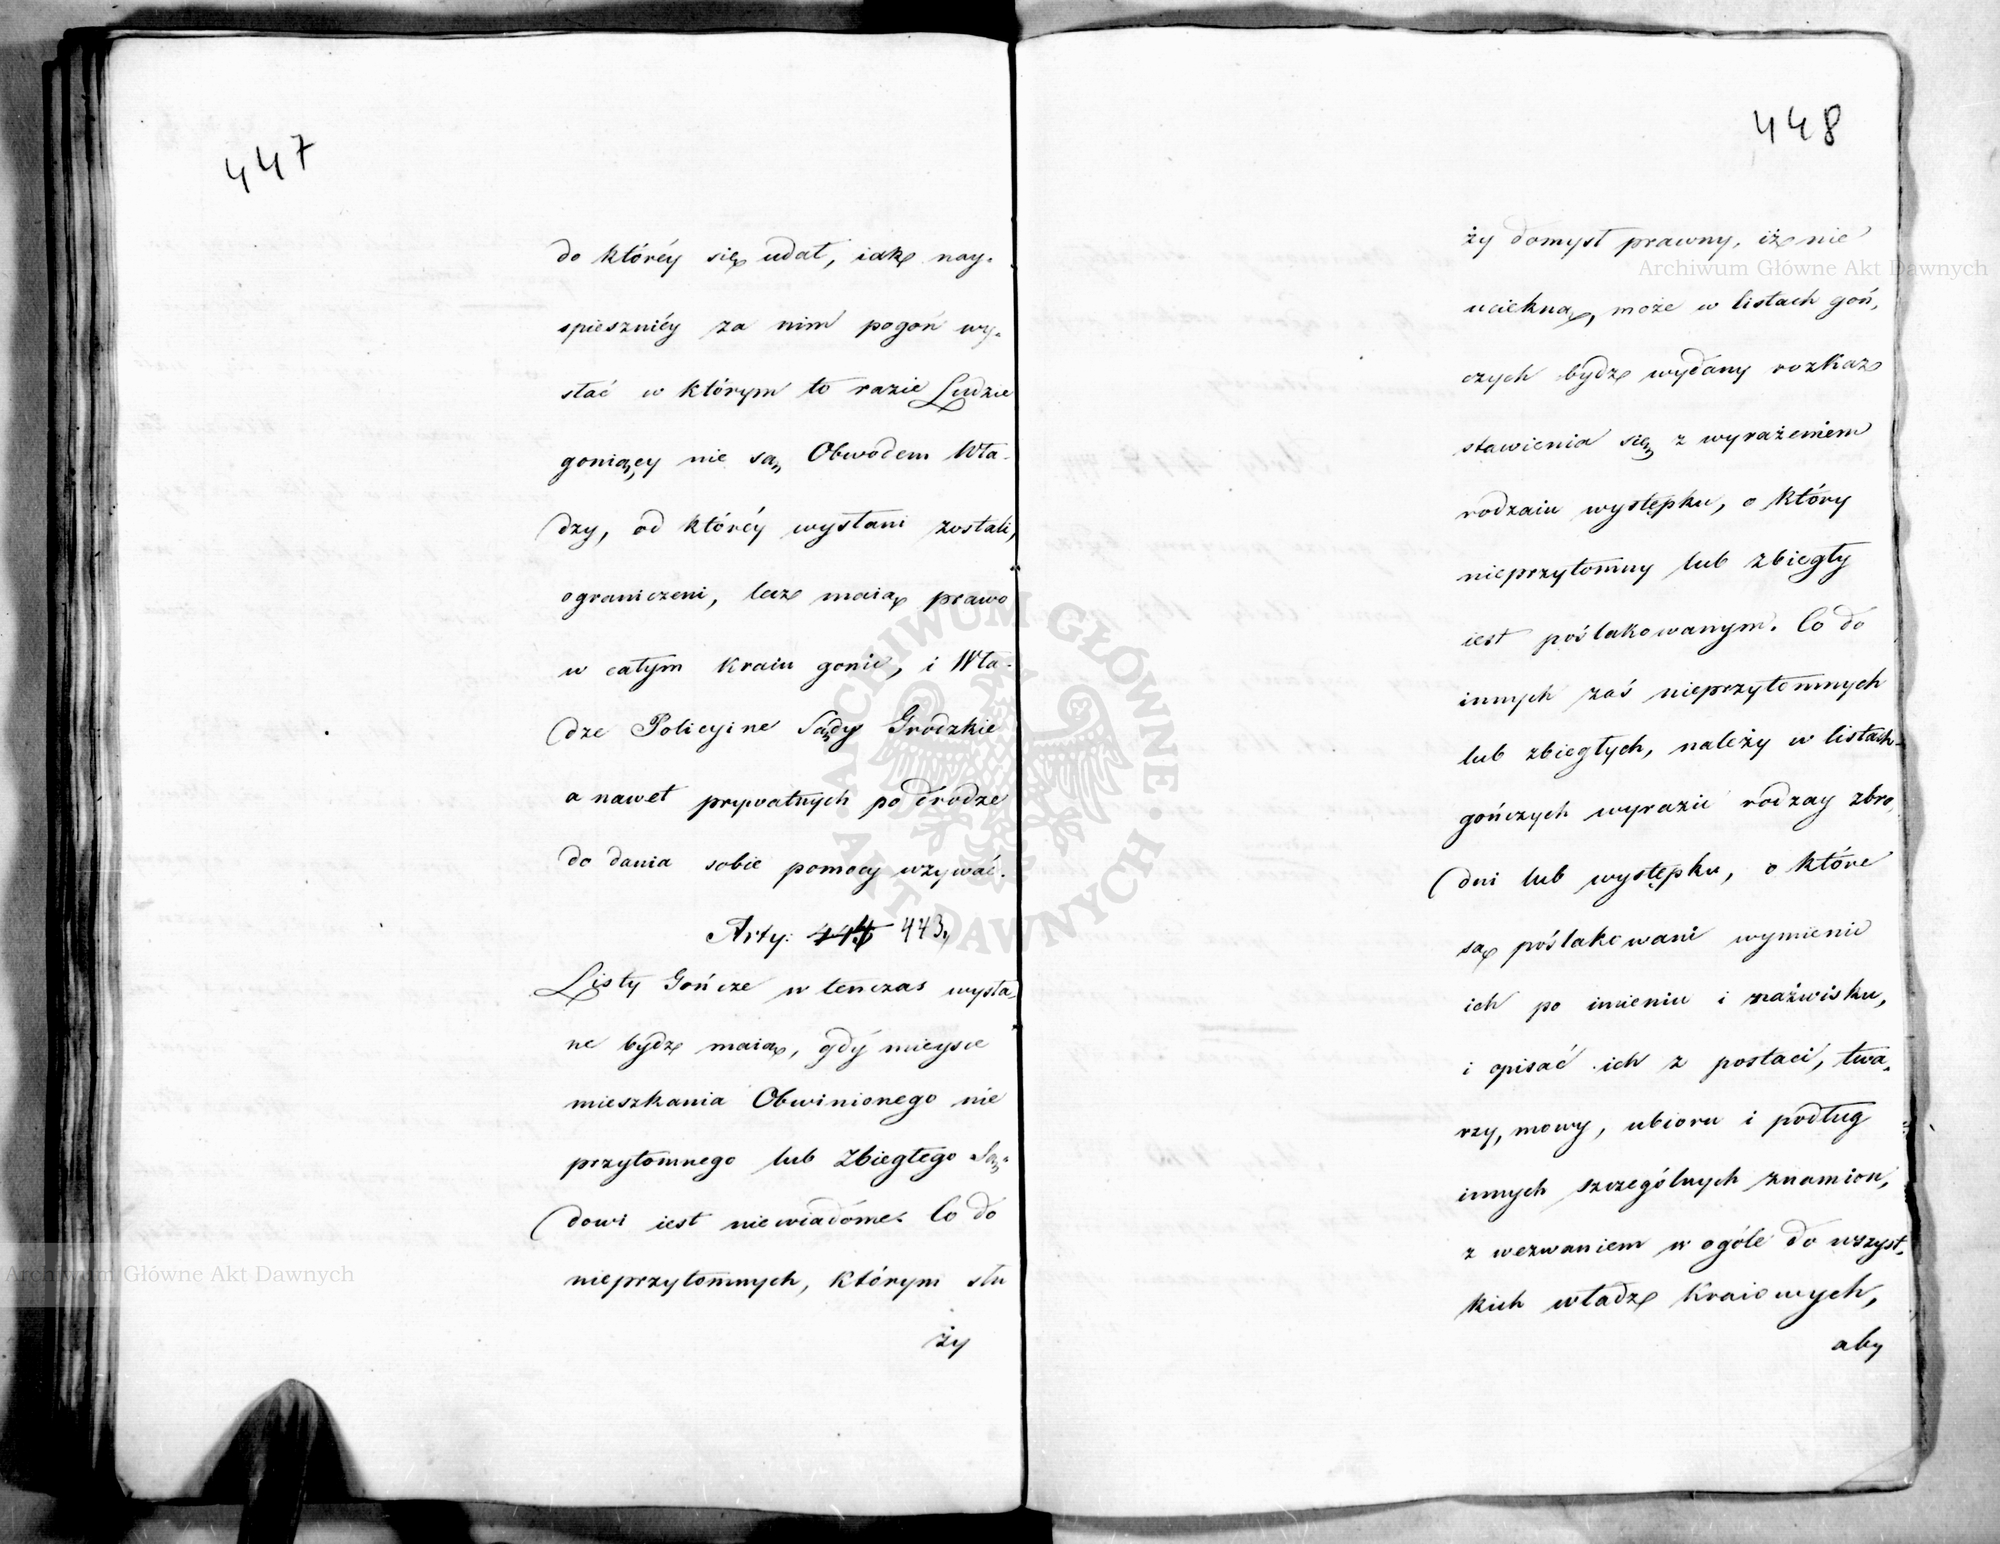 447
do któréy się udał, iak nay-
spieszniéy za nim pogoń wy-
słać w którym to razie Ludzie
goniący nie są Obwodem Wła-
dzy, od któréy wysłani zostali,
ograniczeni, lecz maią prawo
w całym kraiu gonić, i Wła-
dze Policyine Sądy Grodzkie
a nawet prywatnych po drodze
do dania sobie pomocy wzywać.
Arty: 443.
Listy Gończe w tenczas wysła-
ne bydź maią, gdy mieysce
mieszkania Obwinionego nie
przytomnego lub Zbiegłego Są-
dowi iest niewiadome. Co do
nieprzytomnych, którym słu
ży
448
ży domysł prawny, iż nie
uciekną, może w listach goń-
czych bydź wydany rozkaz
stawienia się z wyrażeniem
rodzaiu występku, o który
nieprzytomny lub zbiegły
iest poślakowanym. Co do
innych zaś nieprzytomnych
lub zbiegłych, należy w listach
gończych wyrazić rodzay zbro-
dni lub występku, o które
są poślakowani wymienić
ich po imieniu i nazwisku,
i opisać ich z postaci, twa-
rzy, mowy, ubioru i podług
innych szczególnych znamion,
z wezwaniem w ogóle do wszyst-
kich władz Kraiowych,
aby
Archiwum Główne Akt Dawnych
Archiwum Główne Akt Dawnych
ARCHIWUM GŁÓWNE · AKT DAWNYCH ·